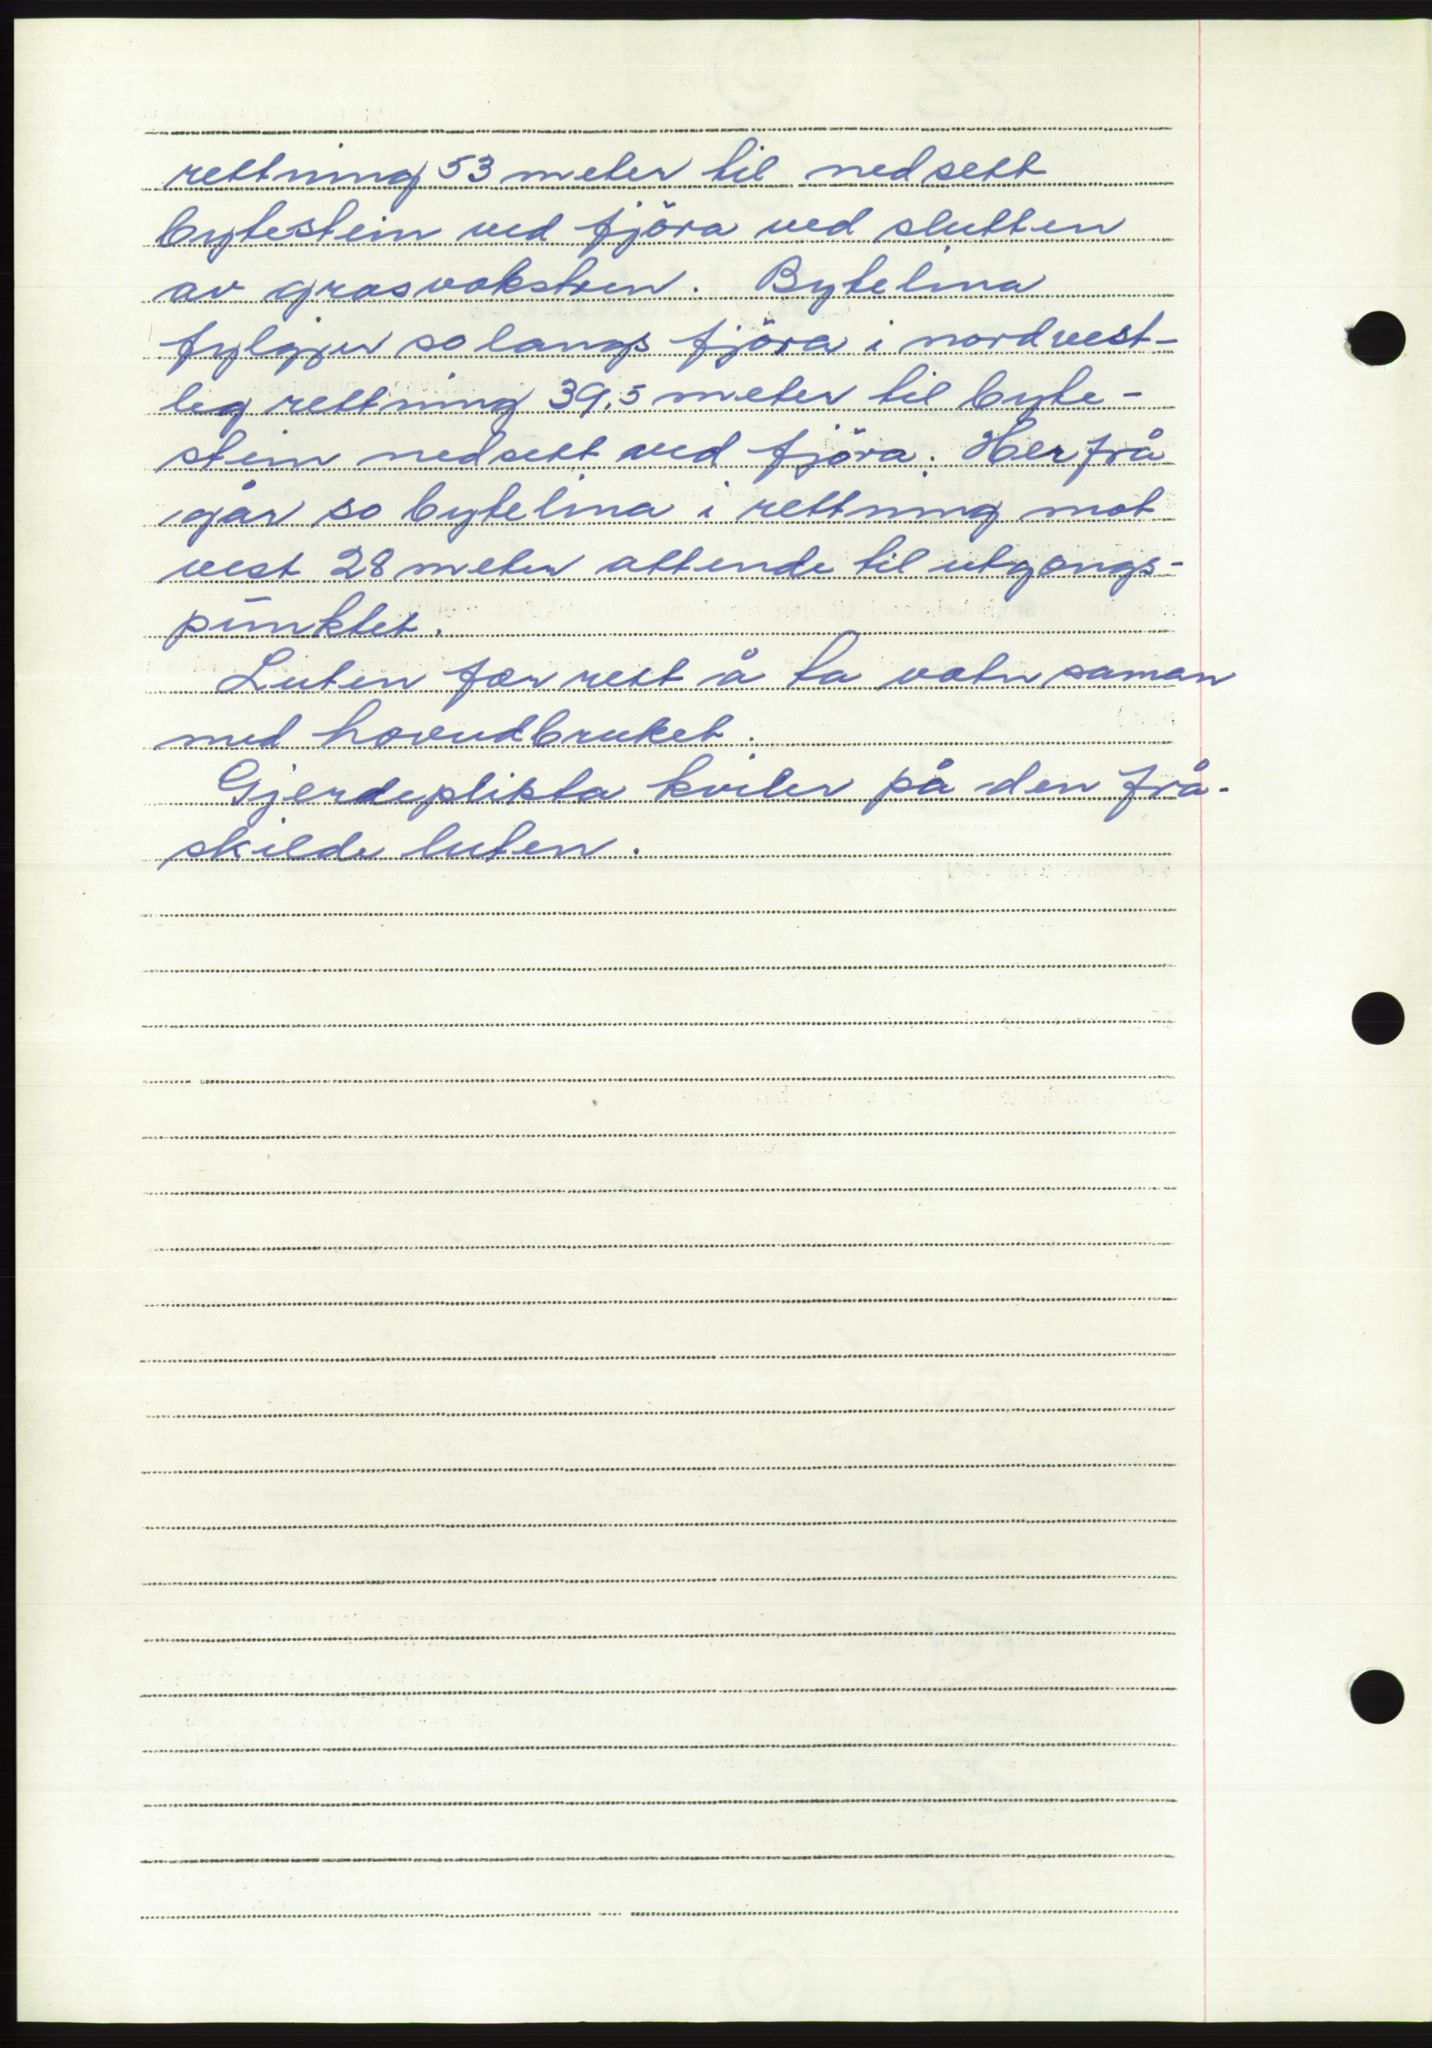 rettning 53 meter til nedsett
bytestein ved fjöra ved slutten
av grasvoksteren. Bytelina
fylgjer so langs fjöra i nordvest-
leg rettning 39,5 meter til byte-
stein nedsett ved fjöra. Her frå
går so bytelina i rettning mot
vest 28 meter attende til utgangs-
punktet.
Luten fær rett å ta vatn saman
med hovudbruket.
Gjerdeplikta kviler på den frå-
skilde luten.